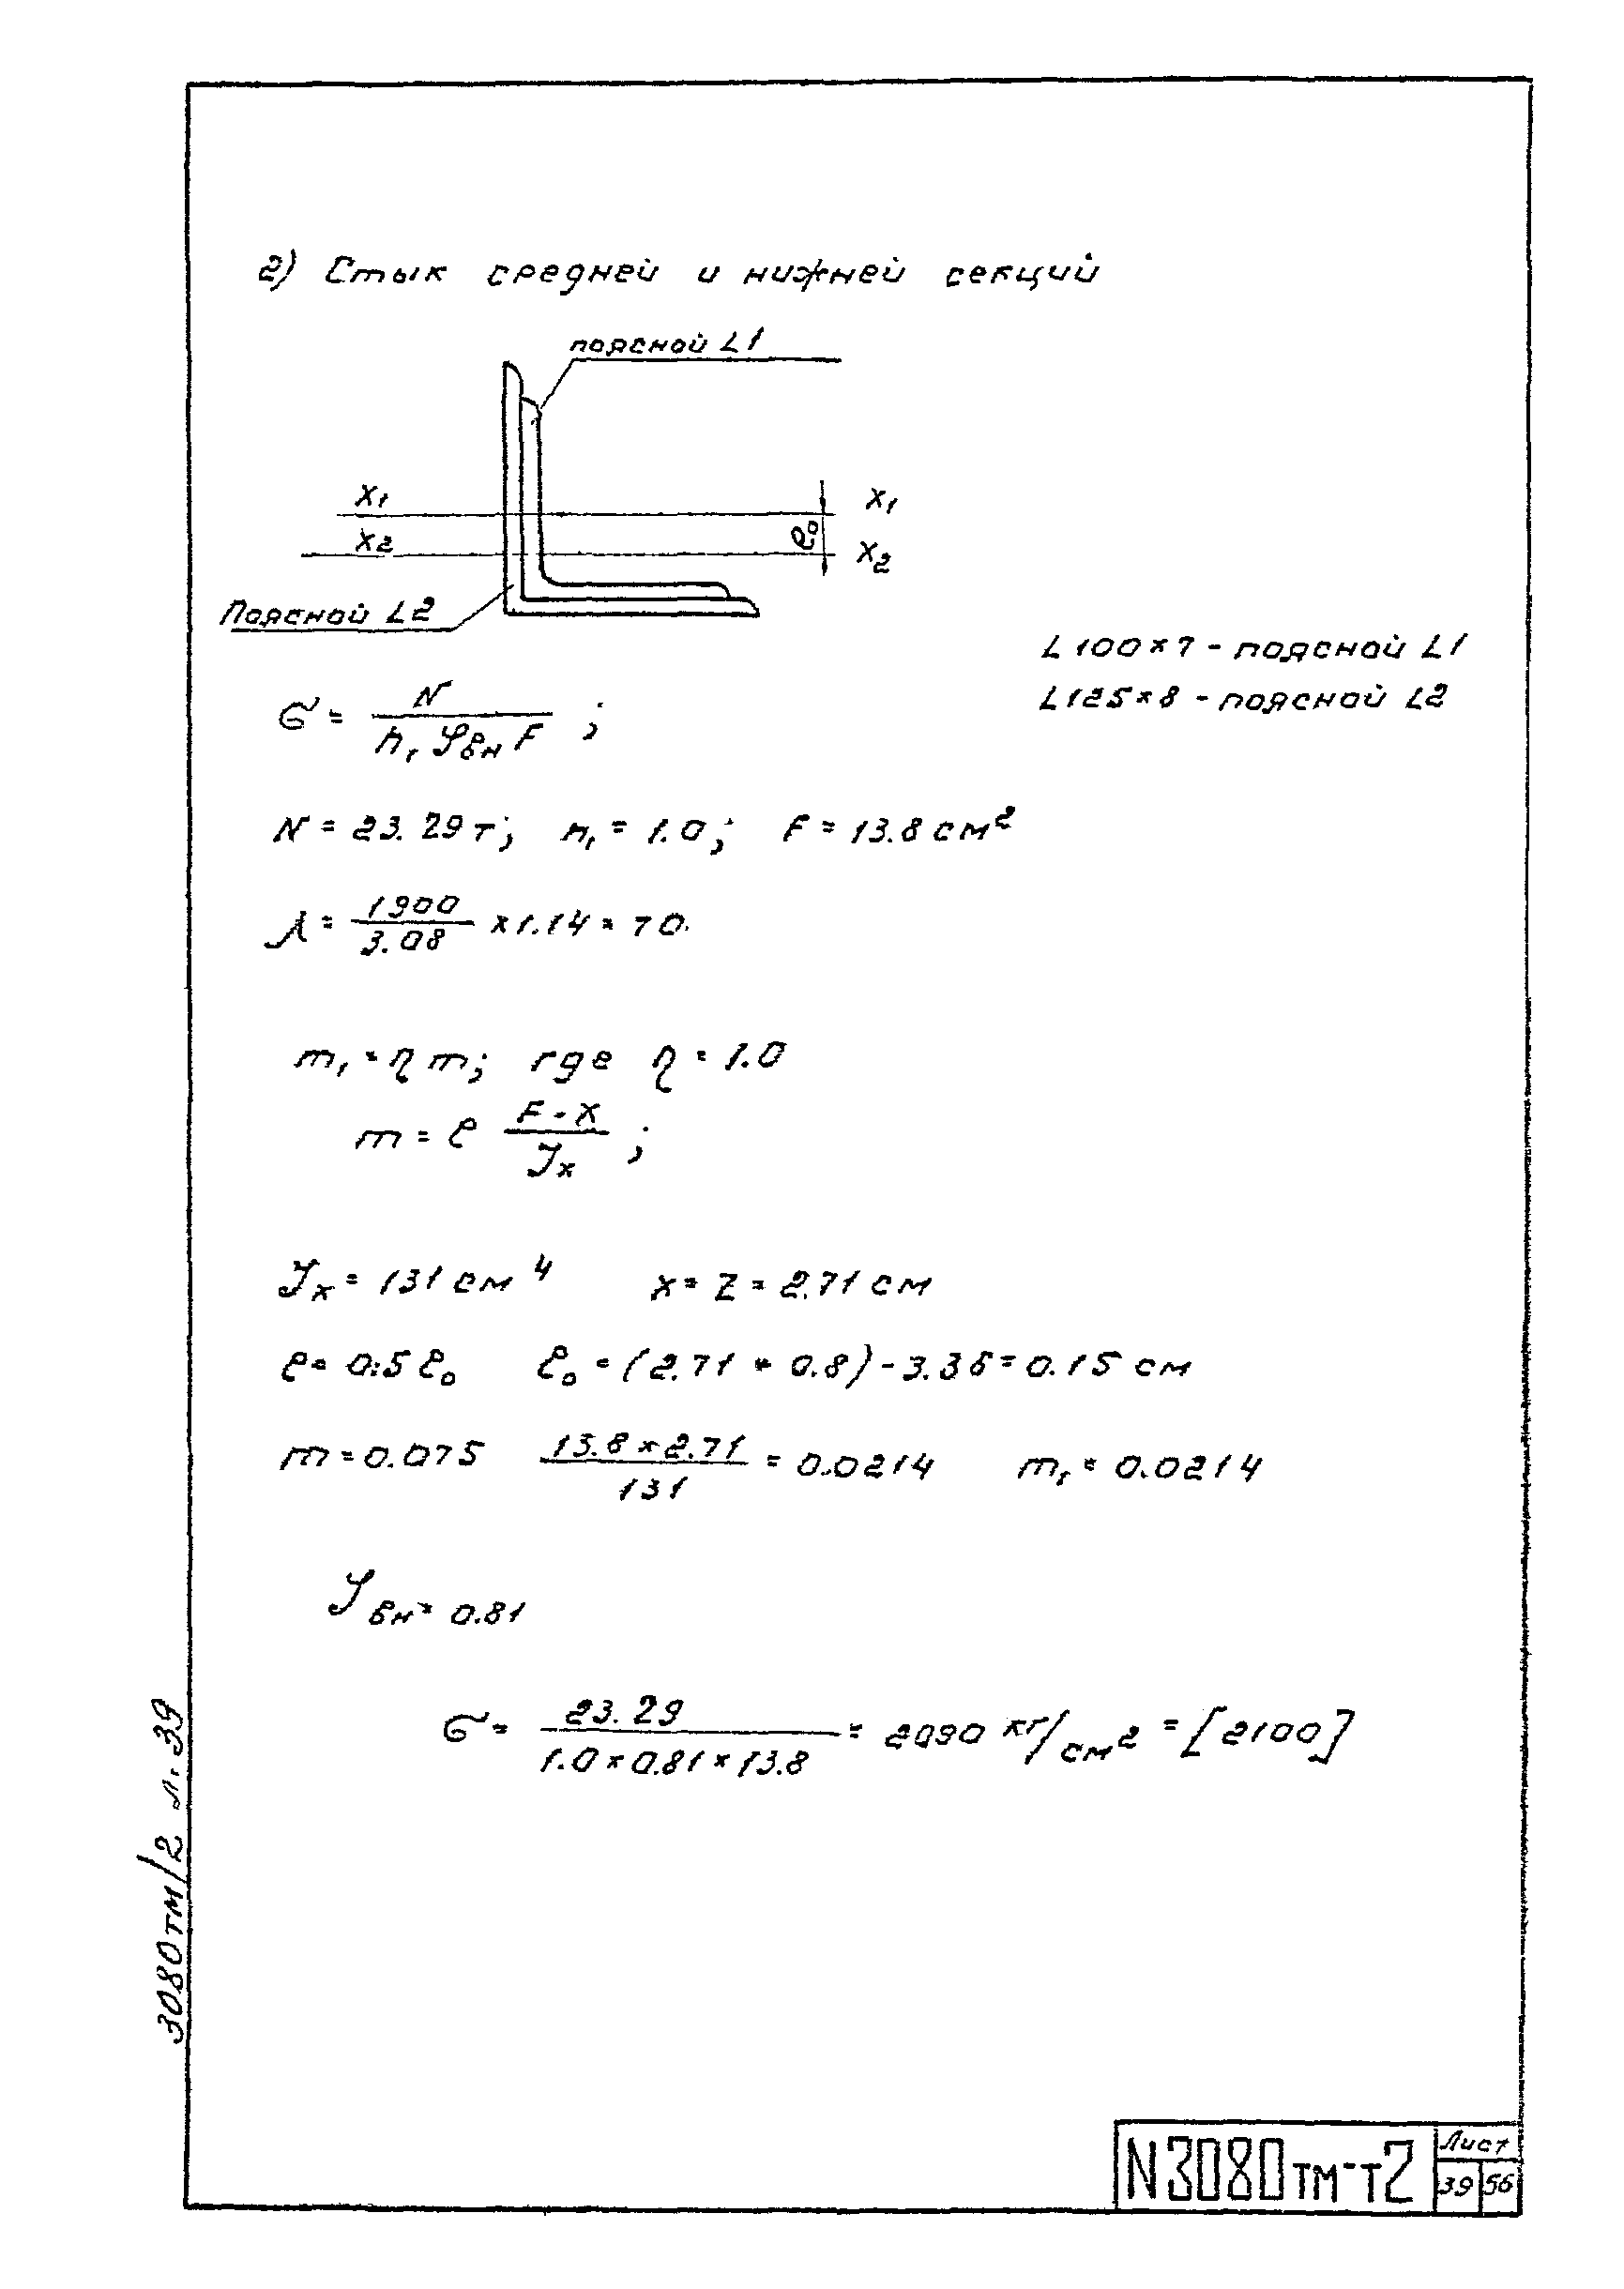 г) Стык средней и нижней секций
поясной L1
X1 X1
X2 e0 X2
Поясной L2
L 100×7 - поясной L1
L125×8 - поясной L2
σ = N / (n1 φвн F) ;
N = 23.29 т; n1 = 1.0; F = 13.8 см²
λ = 1900 / 3.08 × 1.14 = 70
m1 = η m; где η = 1.0
m = e F·X / Jx ;
Jx = 131 см⁴ x = z = 2.71 см
e = 0.5 e0 e0 = (2.71 + 0.8) - 3.36 = 0.15 см
m = 0.075 13.8 × 2.71 / 131 = 0.0214 m1 = 0.0214
φвн = 0.81
σ = 23.29 / (1.0 × 0.81 × 13.8) = 2090 кг/см² = [2100]
3080тм/2 л. 39
N3080тм-т2
Лист
39 56